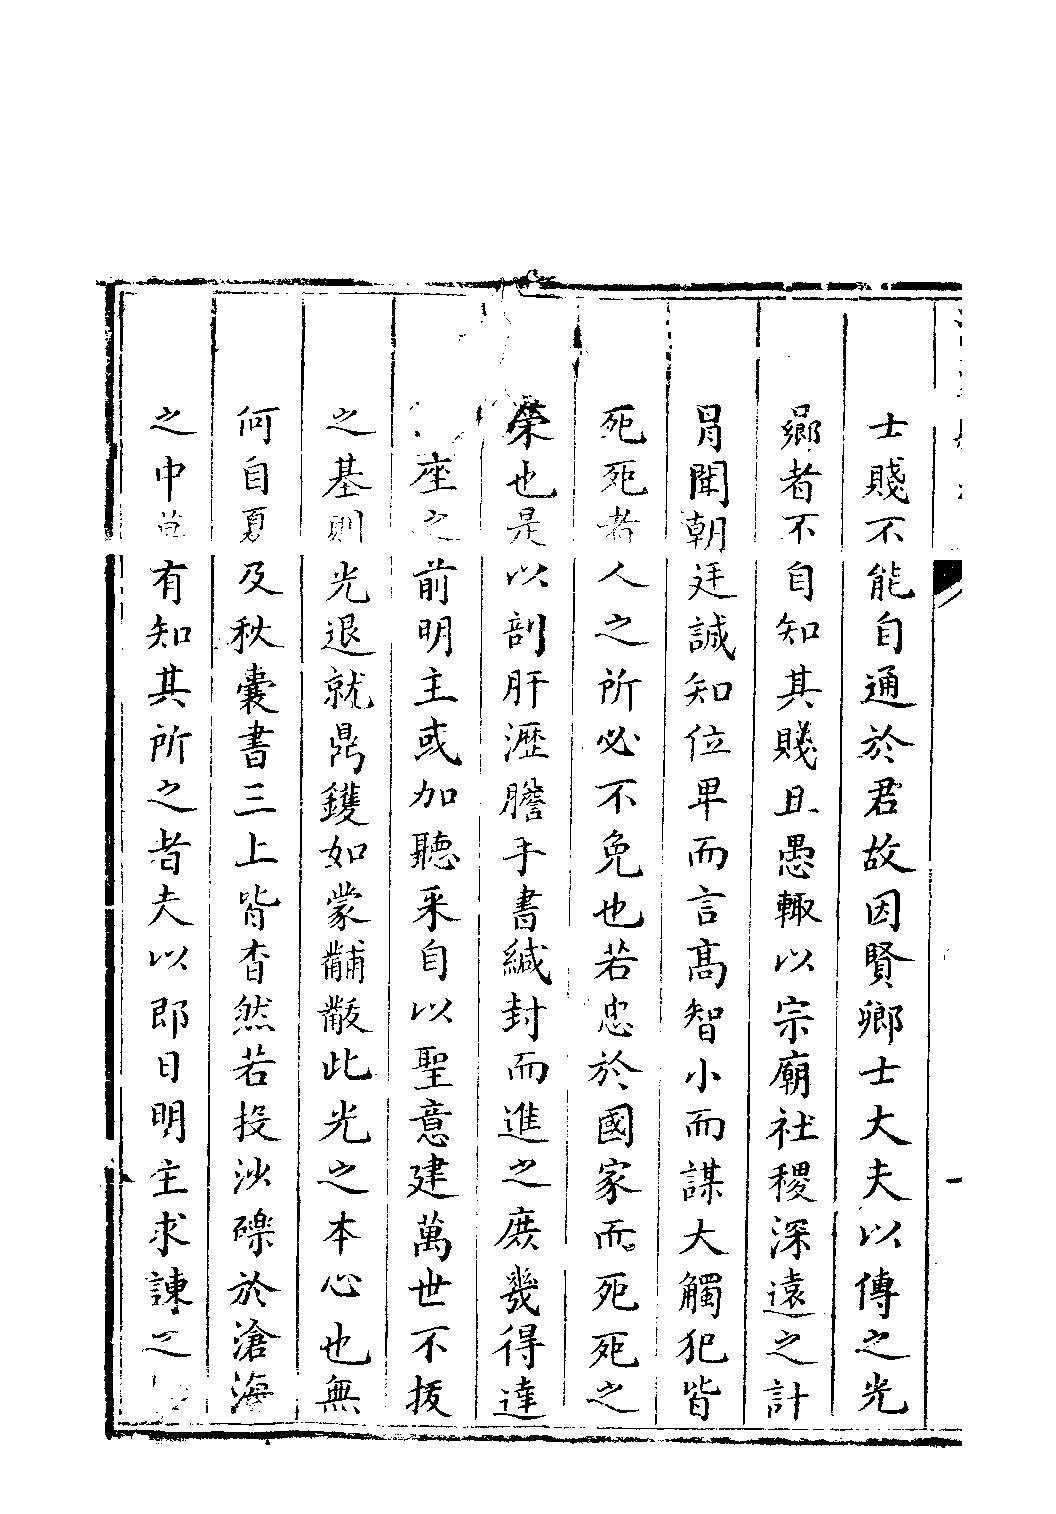 士賤不能自通於君故因賢鄉士大夫以傳之光
曏者不自知其賤且愚輙以宗廟社稷深遠之計
冐聞朝廷誠知位卑而言高智小而謀大觸犯皆
死死者人之所必不免也若忠於國家而死死之
榮也是以剖肝瀝膽手書緘封而進之庻幾得達
座之前明主或加聽采自以聖意建萬世不拔
之基則光退就鼎鑊如蒙黼黻此光之本心也無
何自夏及秋囊書三上皆杳然若投沙礫於滄海
之中莫有知其所之者夫以即日明主求諫之